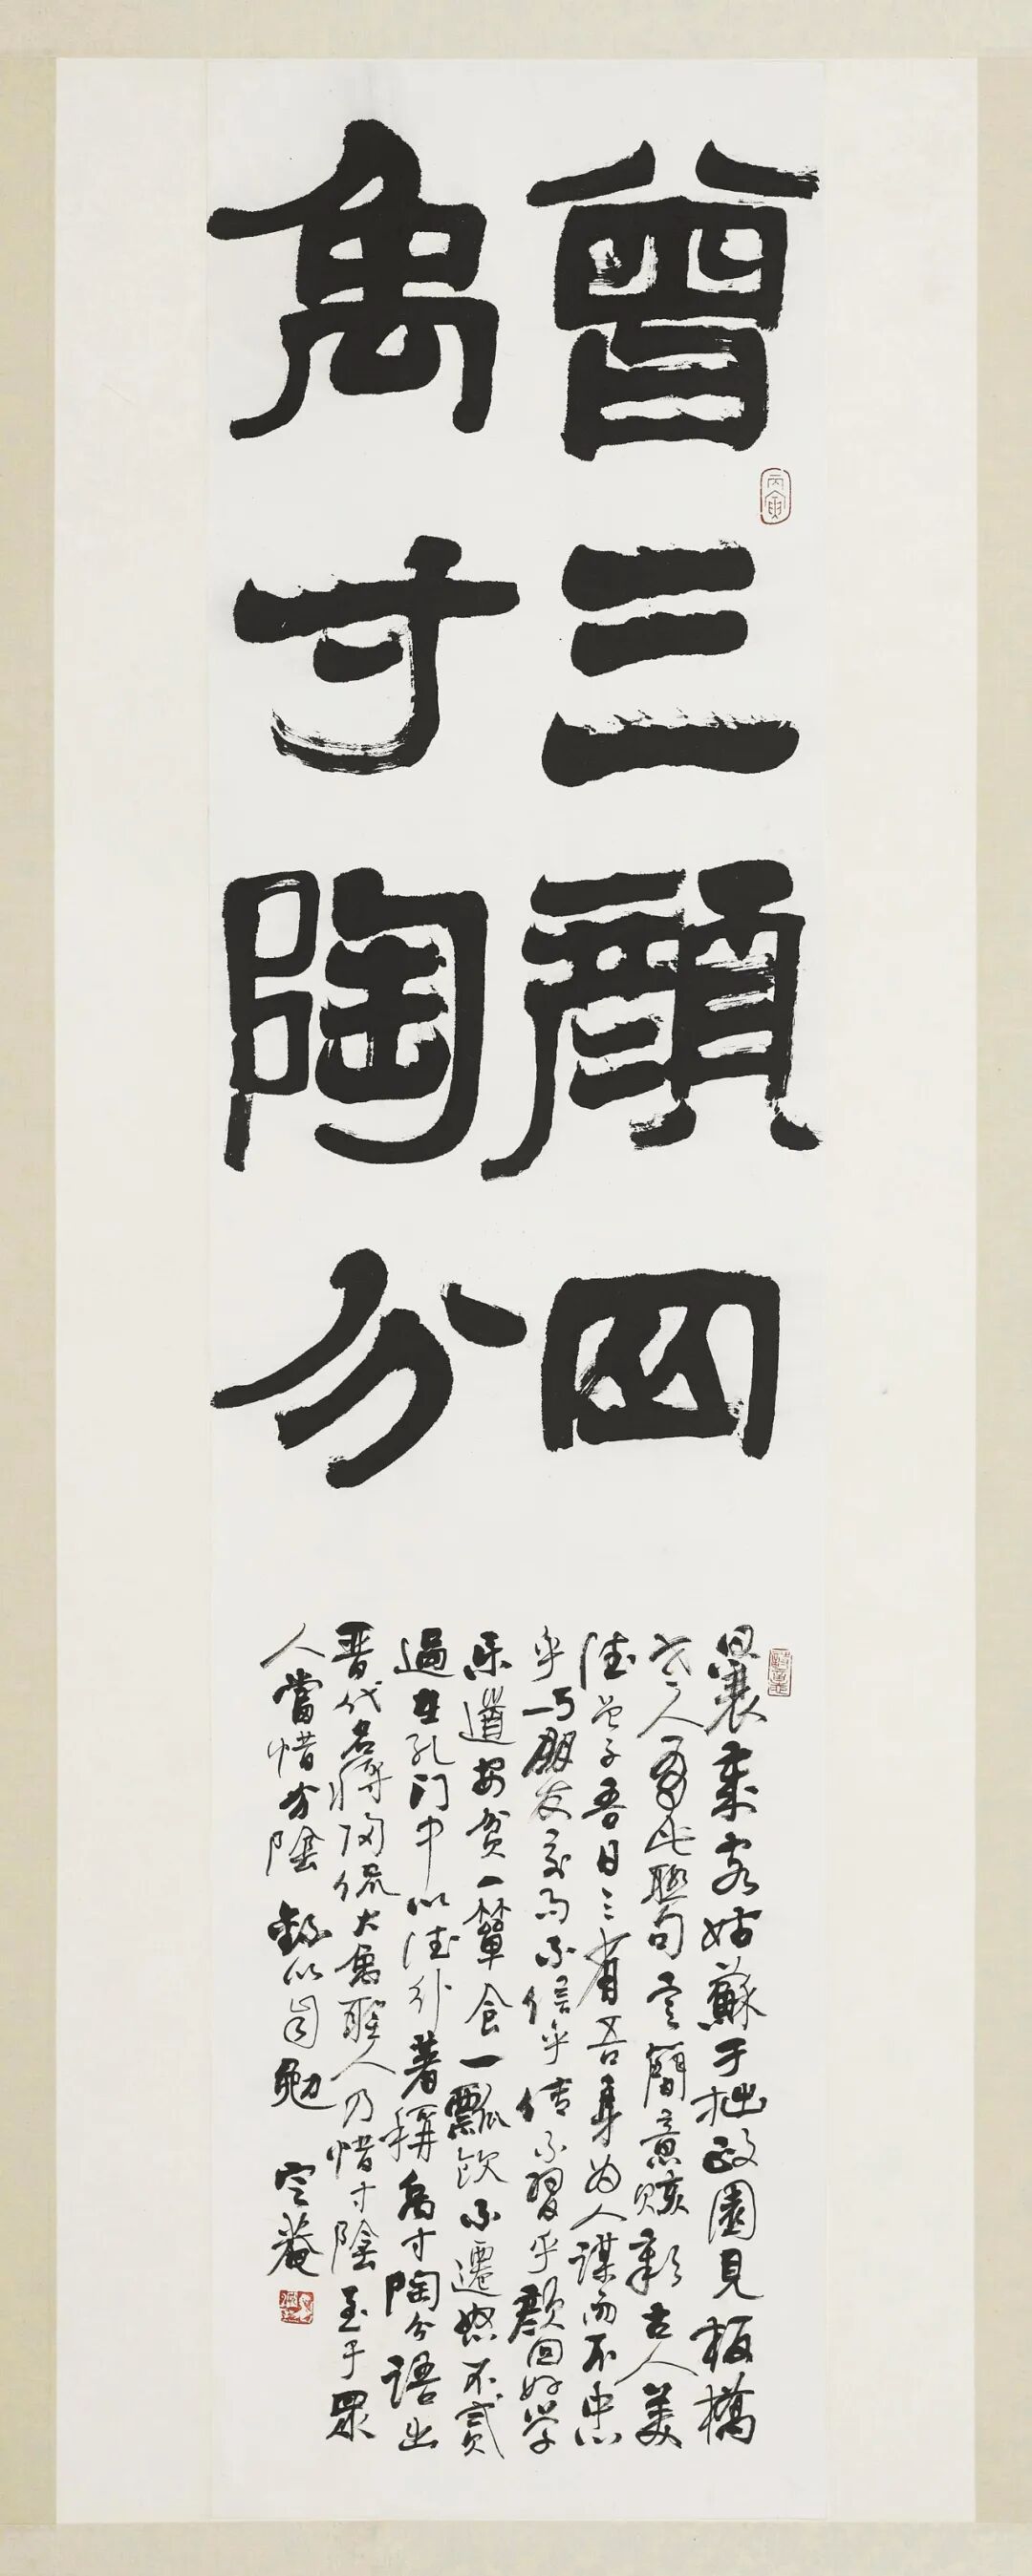 曾三顔四
禹寸陶分
曩乘客姑蘇于拙政園見板橋
老人有此聯句言簡意賅彰古人美
德曾子吾日三省吾身为人謀而不忠
乎与朋友交而不信乎传不習乎顏回好学
乐道安贫一簞食一瓢飲不遷怒不贰
過在孔门中以德行著稱禹寸陶分語出
晋代名將陶侃大禹聖人乃惜寸陰至于眾
人當惜分陰録以自勉 定菴
丙寅